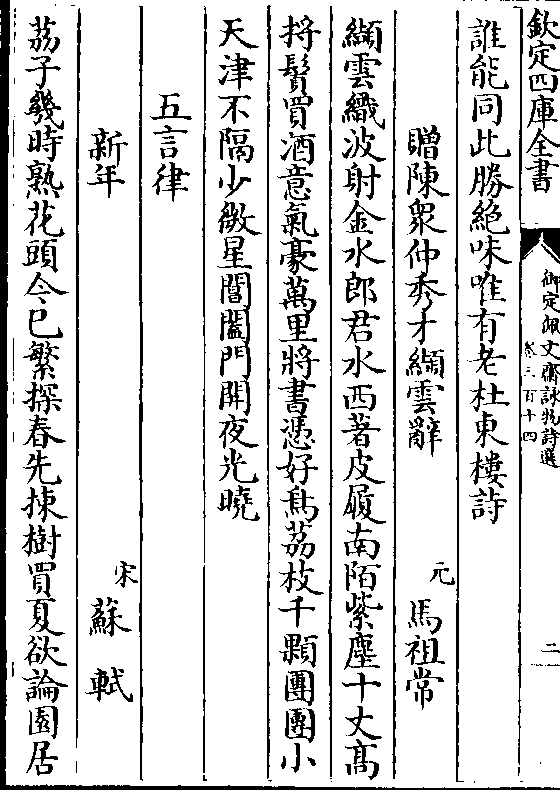 欽定四庫全書
御定佩文齋詠物詩選
卷三百十四
二
誰能同此勝絶味唯有老杜東樓詩
贈陳衆仲秀才纈雲辭
元
馬祖常
纈雲織波射金水郎君水西著皮屨南陌紫塵十丈髙
捋鬚買酒意氣豪萬里將書憑好鳥荔枝千顆團團小
天津不隔少微星閶闔門開夜光曉
五言律
新年
宋
蘇軾
荔子幾時熟花頭今已繁探春先揀樹買夏欲論園居